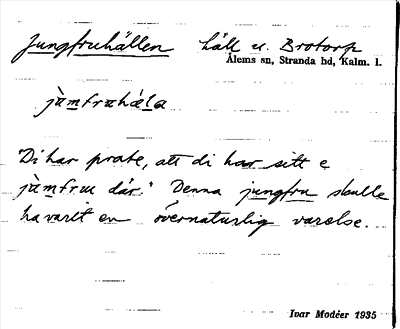 Jungfruhällen häll u. Brotorp
Ålems sn, Stranda hd, Kalm. l.
jùmfruhæla
"Di har prate, att di har sitt e
jùmfru där." Denna jungfru skulle
ha varit en övernaturlig varelse.
Ivar Modéer 1935